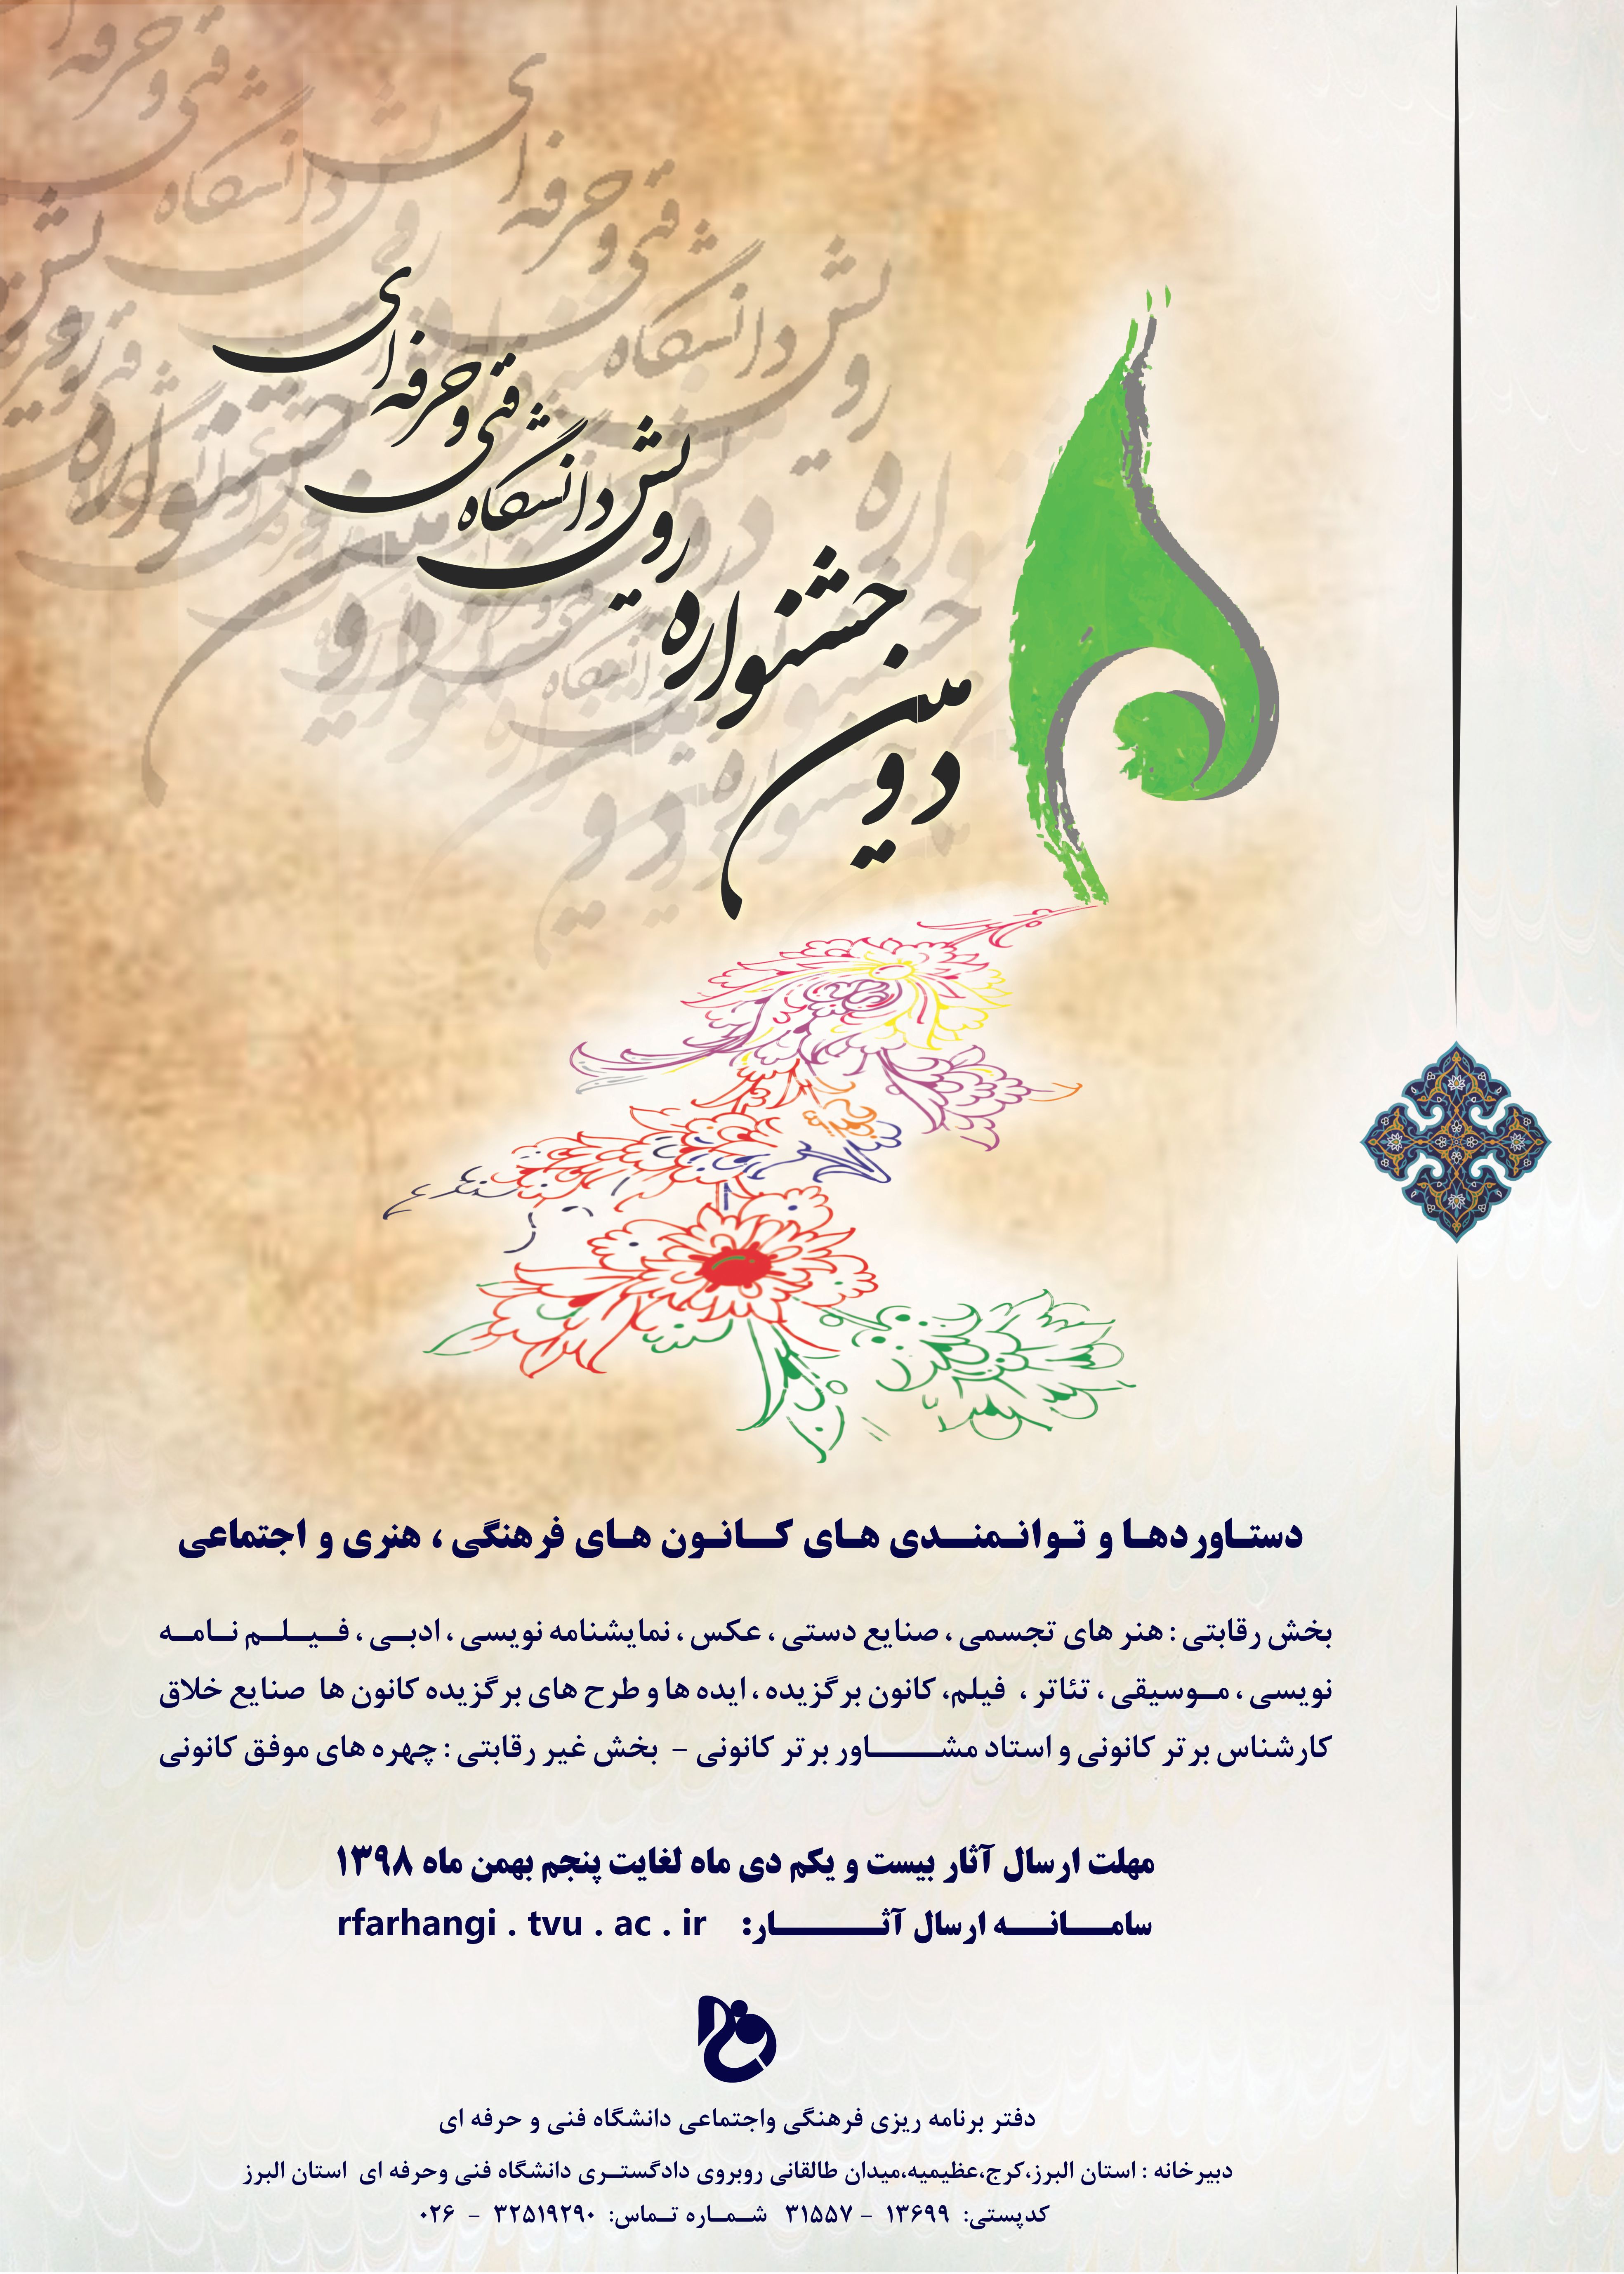 دومین
جشنواره
رویش دانشگاه فنی و حرفه ای
دستاوردها و توانمندی های کانون های فرهنگی ، هنری و اجتماعی
بخش رقابتی : هنر های تجسمی ، صنایع دستی ، عکس ، نمایشنامه نویسی ، ادبی ، فیلم نامه
نویسی ، موسیقی ، تئاتر ، فیلم، کانون برگزیده ، ایده ها و طرح های برگزیده کانون ها صنایع خلاق
کارشناس برتر کانونی و استاد مشاور برتر کانونی - بخش غیر رقابتی : چهره های موفق کانونی
مهلت ارسال آثار بیست و یکم دی ماه لغایت پنجم بهمن ماه ۱۳۹۸
سامانه ارسال آثار: rfarhangi . tvu . ac . ir
دفتر برنامه ریزی فرهنگی واجتماعی دانشگاه فنی و حرفه ای
دبیرخانه : استان البرز،کرج،عظیمیه،میدان طالقانی روبروی دادگستری دانشگاه فنی وحرفه ای استان البرز
کدپستی: ۱۳۶۹۹ - ۳۱۵۵۷ شماره تماس: ۳۲۵۱۹۲۹۰ - ۰۲۶